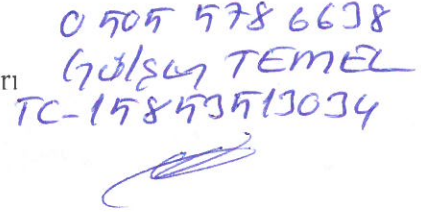 0 505 578 6638
Gülşen TEMEL
rı
TC-15853513034